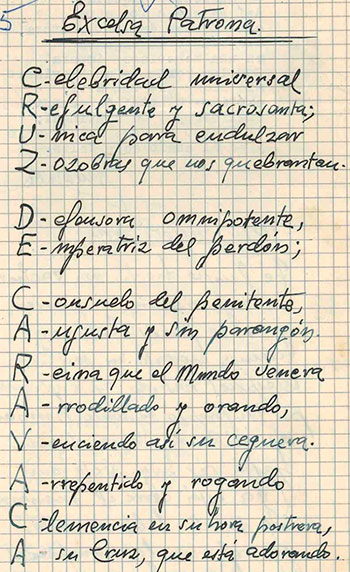 5
Excelsa Patrona.
C-elebridad universal
R-efulgente y sacrosanta;
U-nica para endulzar
Z-ozobras que nos quebrantan.
D-efensora omnipotente,
E-mperatriz del perdón;
C-onsuelo del penitente,
A-ugusta y sin parangón.
R-eina que el Mundo venera
A-rrodillado y orando,
V-enciendo así su ceguera.
A-rrepentido y rogando
C-lemencia en su hora postrera,
A-su Cruz, que está adorando.